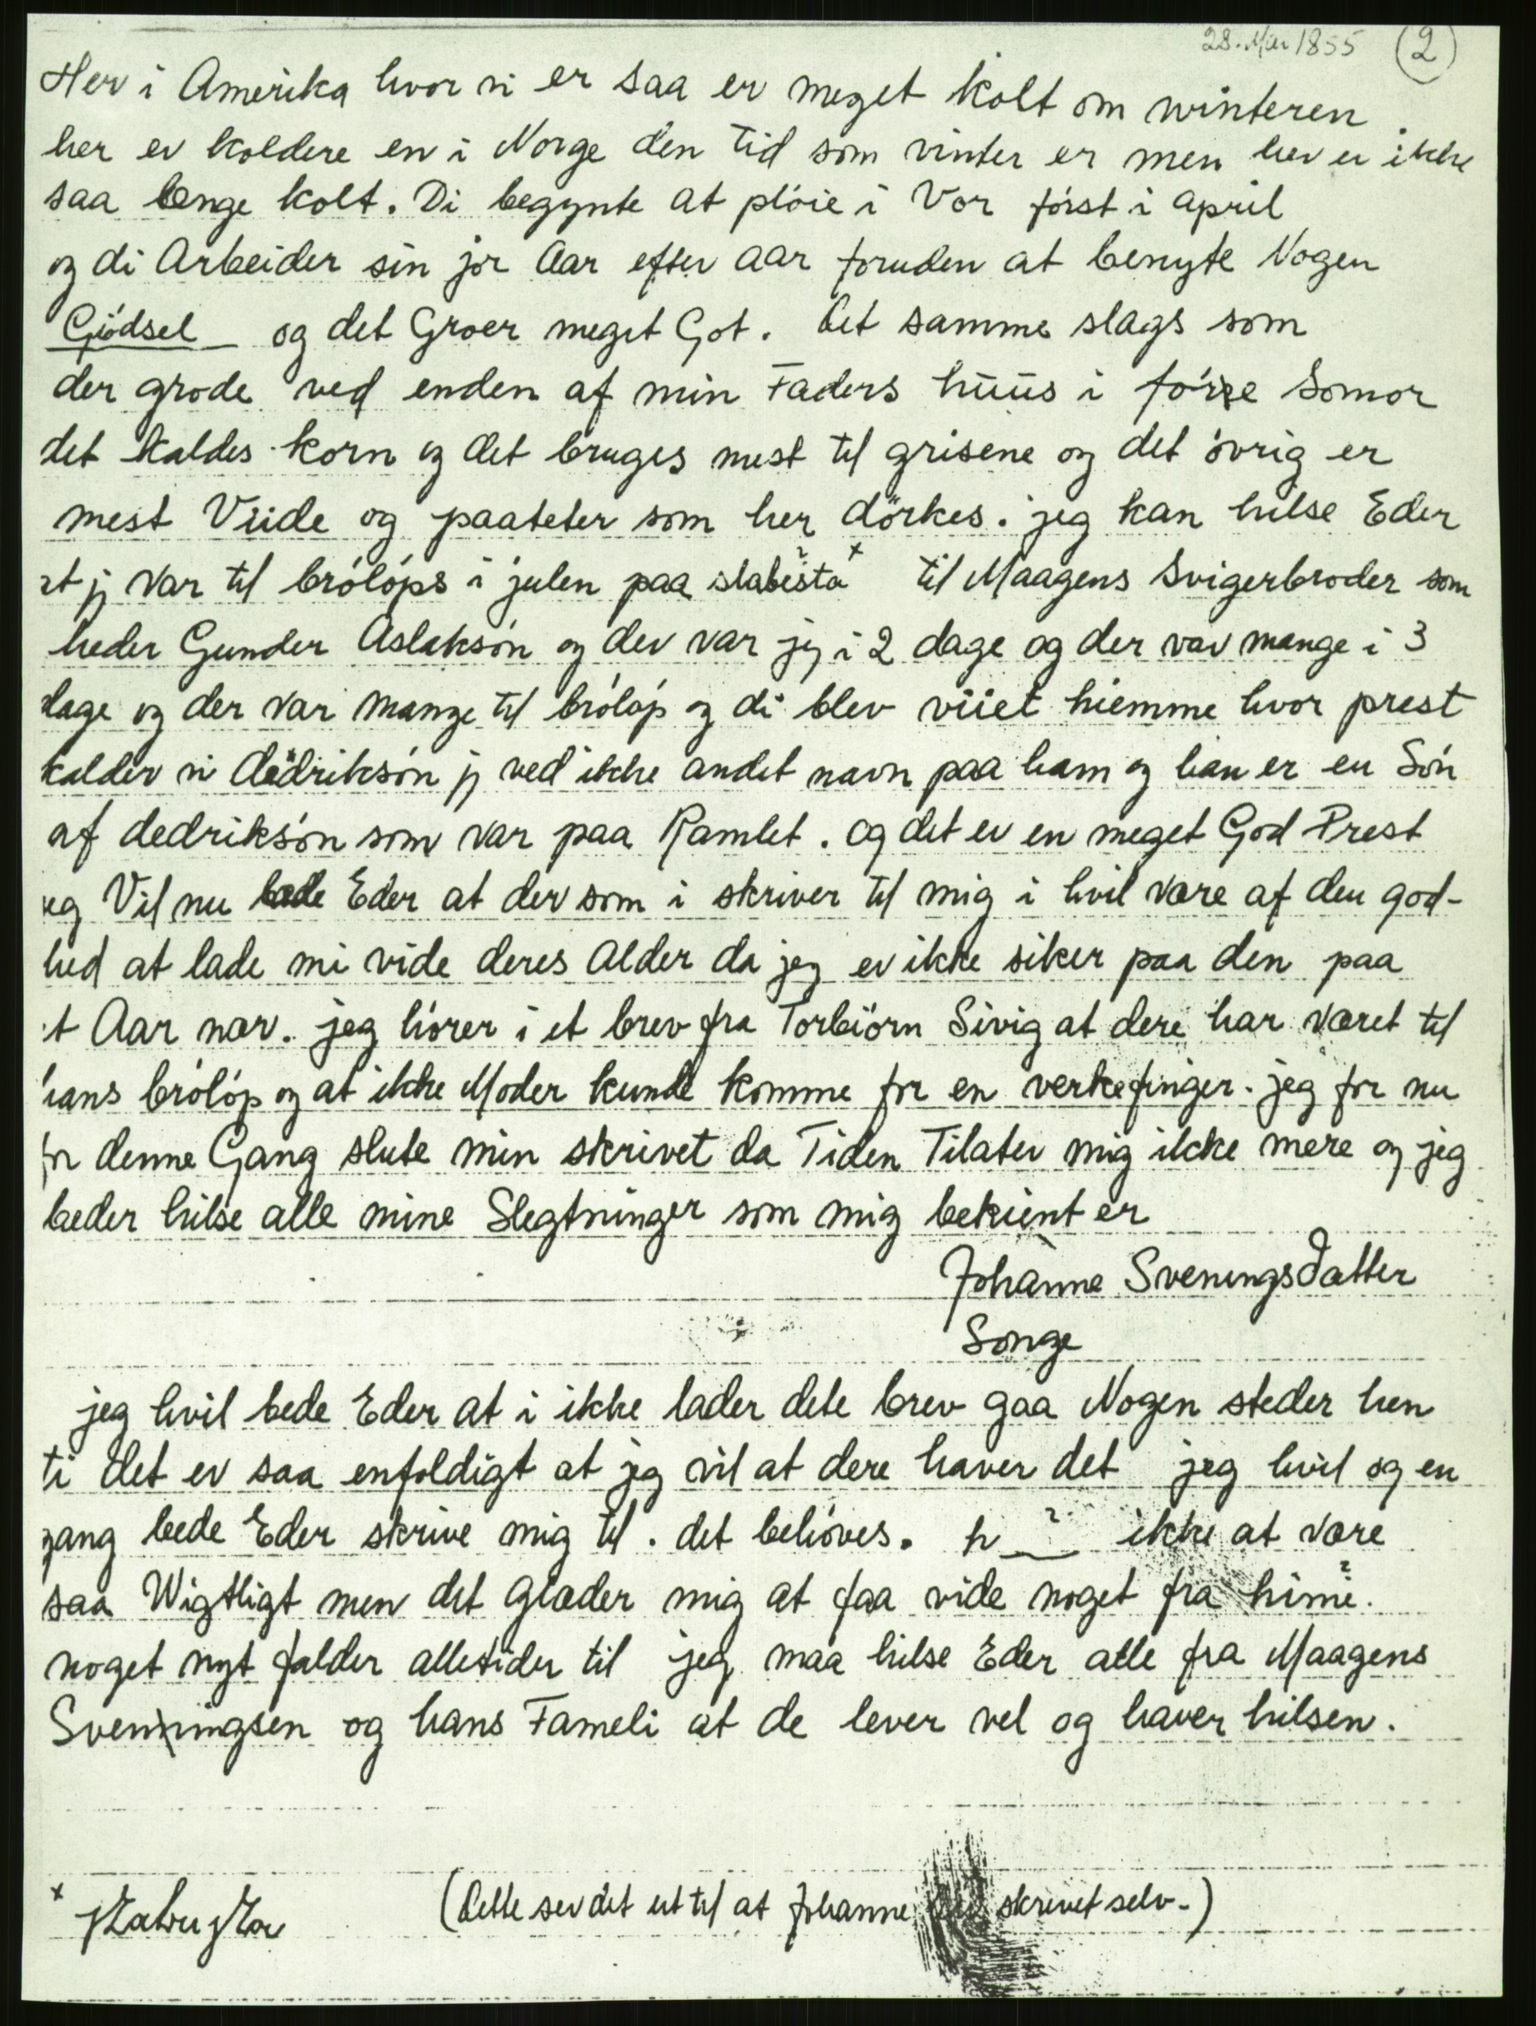 28. Mai 1855 (2)
Her i Amerika hvor vi er saa er meget kolt om winteren
her er koldere en i Norge den tid som vinter er men her er ikke
saa længe kolt. Di begynte at plöie i Vor först i April
og di Arbeider sin jor Aar efter aar foruden at benyte Nogen
Giödsel og det Groer meget Got. Det samme slags som
der grode ved enden af min Faders huus i förre Somor
det kaldes korn og det bruges mest til grisene og det övrig er
mest Viide og paateter som her dörkes. jeg kan hilse Eder
at jg var til brölöps i julen paa slabista ? x til Maagens Svigerbroder som
heder Gunder Aslaksön og der var jeg i 2 dage og der var mange i 3
dage og der var Mange til brölöp og di blev viiet hiemme hvor prest
kalder vi dedriksön jg ved ikke andet navn paa ham og han er en Sön
af dedriksön som var paa Ramlet. og det er en meget God Prest
jeg Vil nu bede Eder at dersom i skriver til mig i hvil være af den god-
hed at lade mi vide deres Alder da jeg er ikke siker paa den paa
et Aar nær. jeg hörer i et brev fra Torbiörn Sivig at dere har været til
hans brölöp og at ikke Moder kunde komme for en verkefinger. jeg for nu
for denne Gang slute min skrivet da Tiden Tilater mig ikke mere og jeg
beder hilse alle mine Slegtninger som mig bekient er
Johanne Sveningsdatter
Songe
jeg hvil bede Eder at i ikke lader dete brev gaa Nogen steder hen
ti det er saa enfoldigt at jeg vil at dere haver det jeg hvil og en
gang bede Eder skrive mig til. det behöves. h ? ikke at være
saa Wigtligt men det Glæder mig at faa vide noget fra himi ?.
noget nyt falder alletider til jeg maa hilse Eder alle fra Maagens
Svenningsen og hans Fameli at de lever vel og haver hilsen.
x
(Dette ser det ut til at Johanne har skrevet selv.)